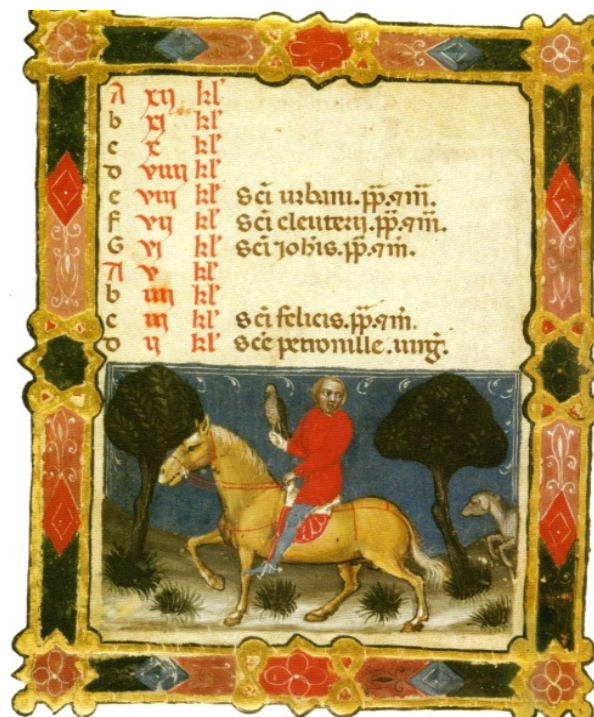 A xij kl'
b xj kl'
c x kl'
d viiij kl'
e viij kl' Sc̄i urbani. pp̄. ⁊ m̄.
f vij kl' Sc̄i eleuterij. pp̄. ⁊ m̄.
G vj kl' Sc̄i iohīs. pp̄. ⁊ m̄.
A v kl'
b iiij kl'
c iij kl' Sc̄i felicis. pp̄. ⁊ m̄.
d ij kl' Sc̄e petronille. uirḡ.